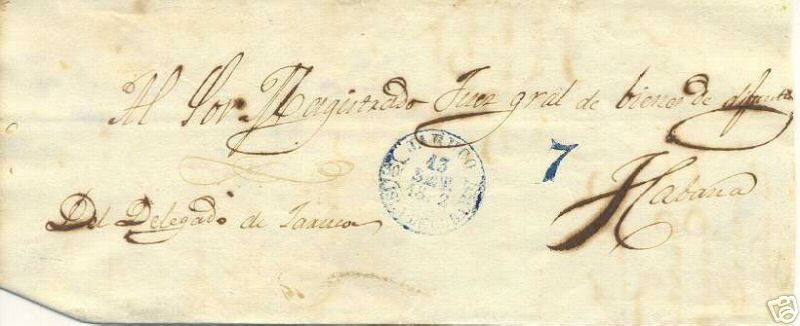 Al Sor Magistrado Juez gral de bienes de difuntos
JARUCO
13
7
Habana
Del Delegado de Jaruco